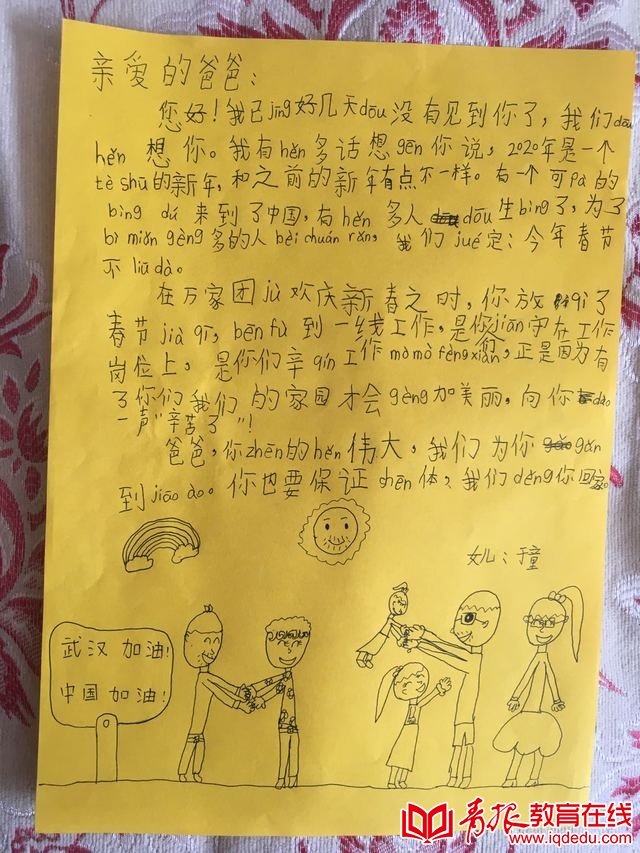 亲爱的爸爸：
您好！我已jīng好几天dōu没有见到你了，我们dōu
hěn想你。我有hěn多话想gēn你说，2020年是一个
tè shū的新年，和之前的新年有点不一样。有一个可pà的
bìng dú来到了中国，有hěn多人dōu生bìng了，为了
bì miǎn gèng多的人bèi chuán rǎn，我们jué定：今年春节
不liū dà。
在万家团jù欢庆新春之时，你放qì了
春节jià qī，bēn fù到一线工作，是你们jiān守在工作
岗位上，是你们辛qín工作mò mò fèng xiàn，正是因为有
了你们我们的家园才会gèng加美丽，向你dào
一声“辛苦了”！
爸爸，你zhēn的hěn伟大，我们为你gǎn
到jiāo ào。你也要保证shēn体，我们děng你回家。
女儿：于童
武汉加油！
中国加油！
青报教育在线
www.iqdedu.com